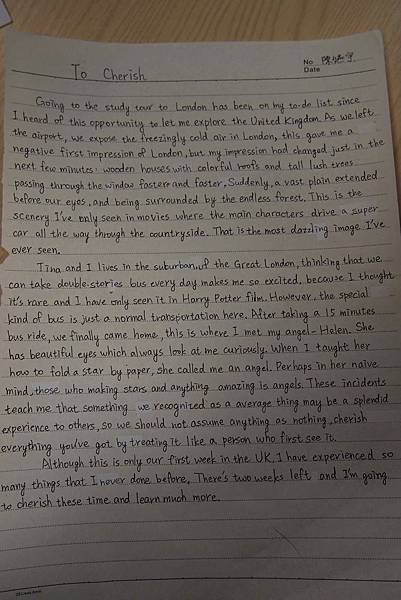 No 陳
Date
To Cherish
Going to the study tour to London has been on my to-do list since
I heard of this opportunity to let me explore the United Kingdom. As we left
the airport, we expose the freezingly cold air in London, this gave me a
negative first impression of London, but my impression had changed just in the
next few minutes: wooden houses with colorful roofs and tall lush trees
passing through the window faster and faster. Suddenly, a vast plain extended
before our eyes, and being surrounded by the endless forest. This is the
scenery I've only seen in movies where the main characters drive a super
car all the way through the countryside. That is the most dazzling image I've
ever seen.
Tina and I lives in the suburban of the Great London, thinking that we
can take double-stories bus every day makes me so excited, because I thought
it's rare and I have only seen it in Harry Potter film. However, the special
kind of bus is just a normal transportation here. After taking a 15 minutes
bus ride, we finally came home, this is where I met my angel-Helen. She
has beautiful eyes which always look at me curiously. When I taught her
how to fold a star by paper, she called me an angel. Perhaps in her naive
mind, those who making stars and anything amazing is angels. These incidents
teach me that something we recognized as a average thing may be a splendid
experience to others, so we should not assume anything as nothing, cherish
everything you've got by treating it like a person who first see it.
Although this is only our first week in the UK, I have experienced so
many things that I never done before. There's two weeks left and I'm going
to cherish these time and learn much more.